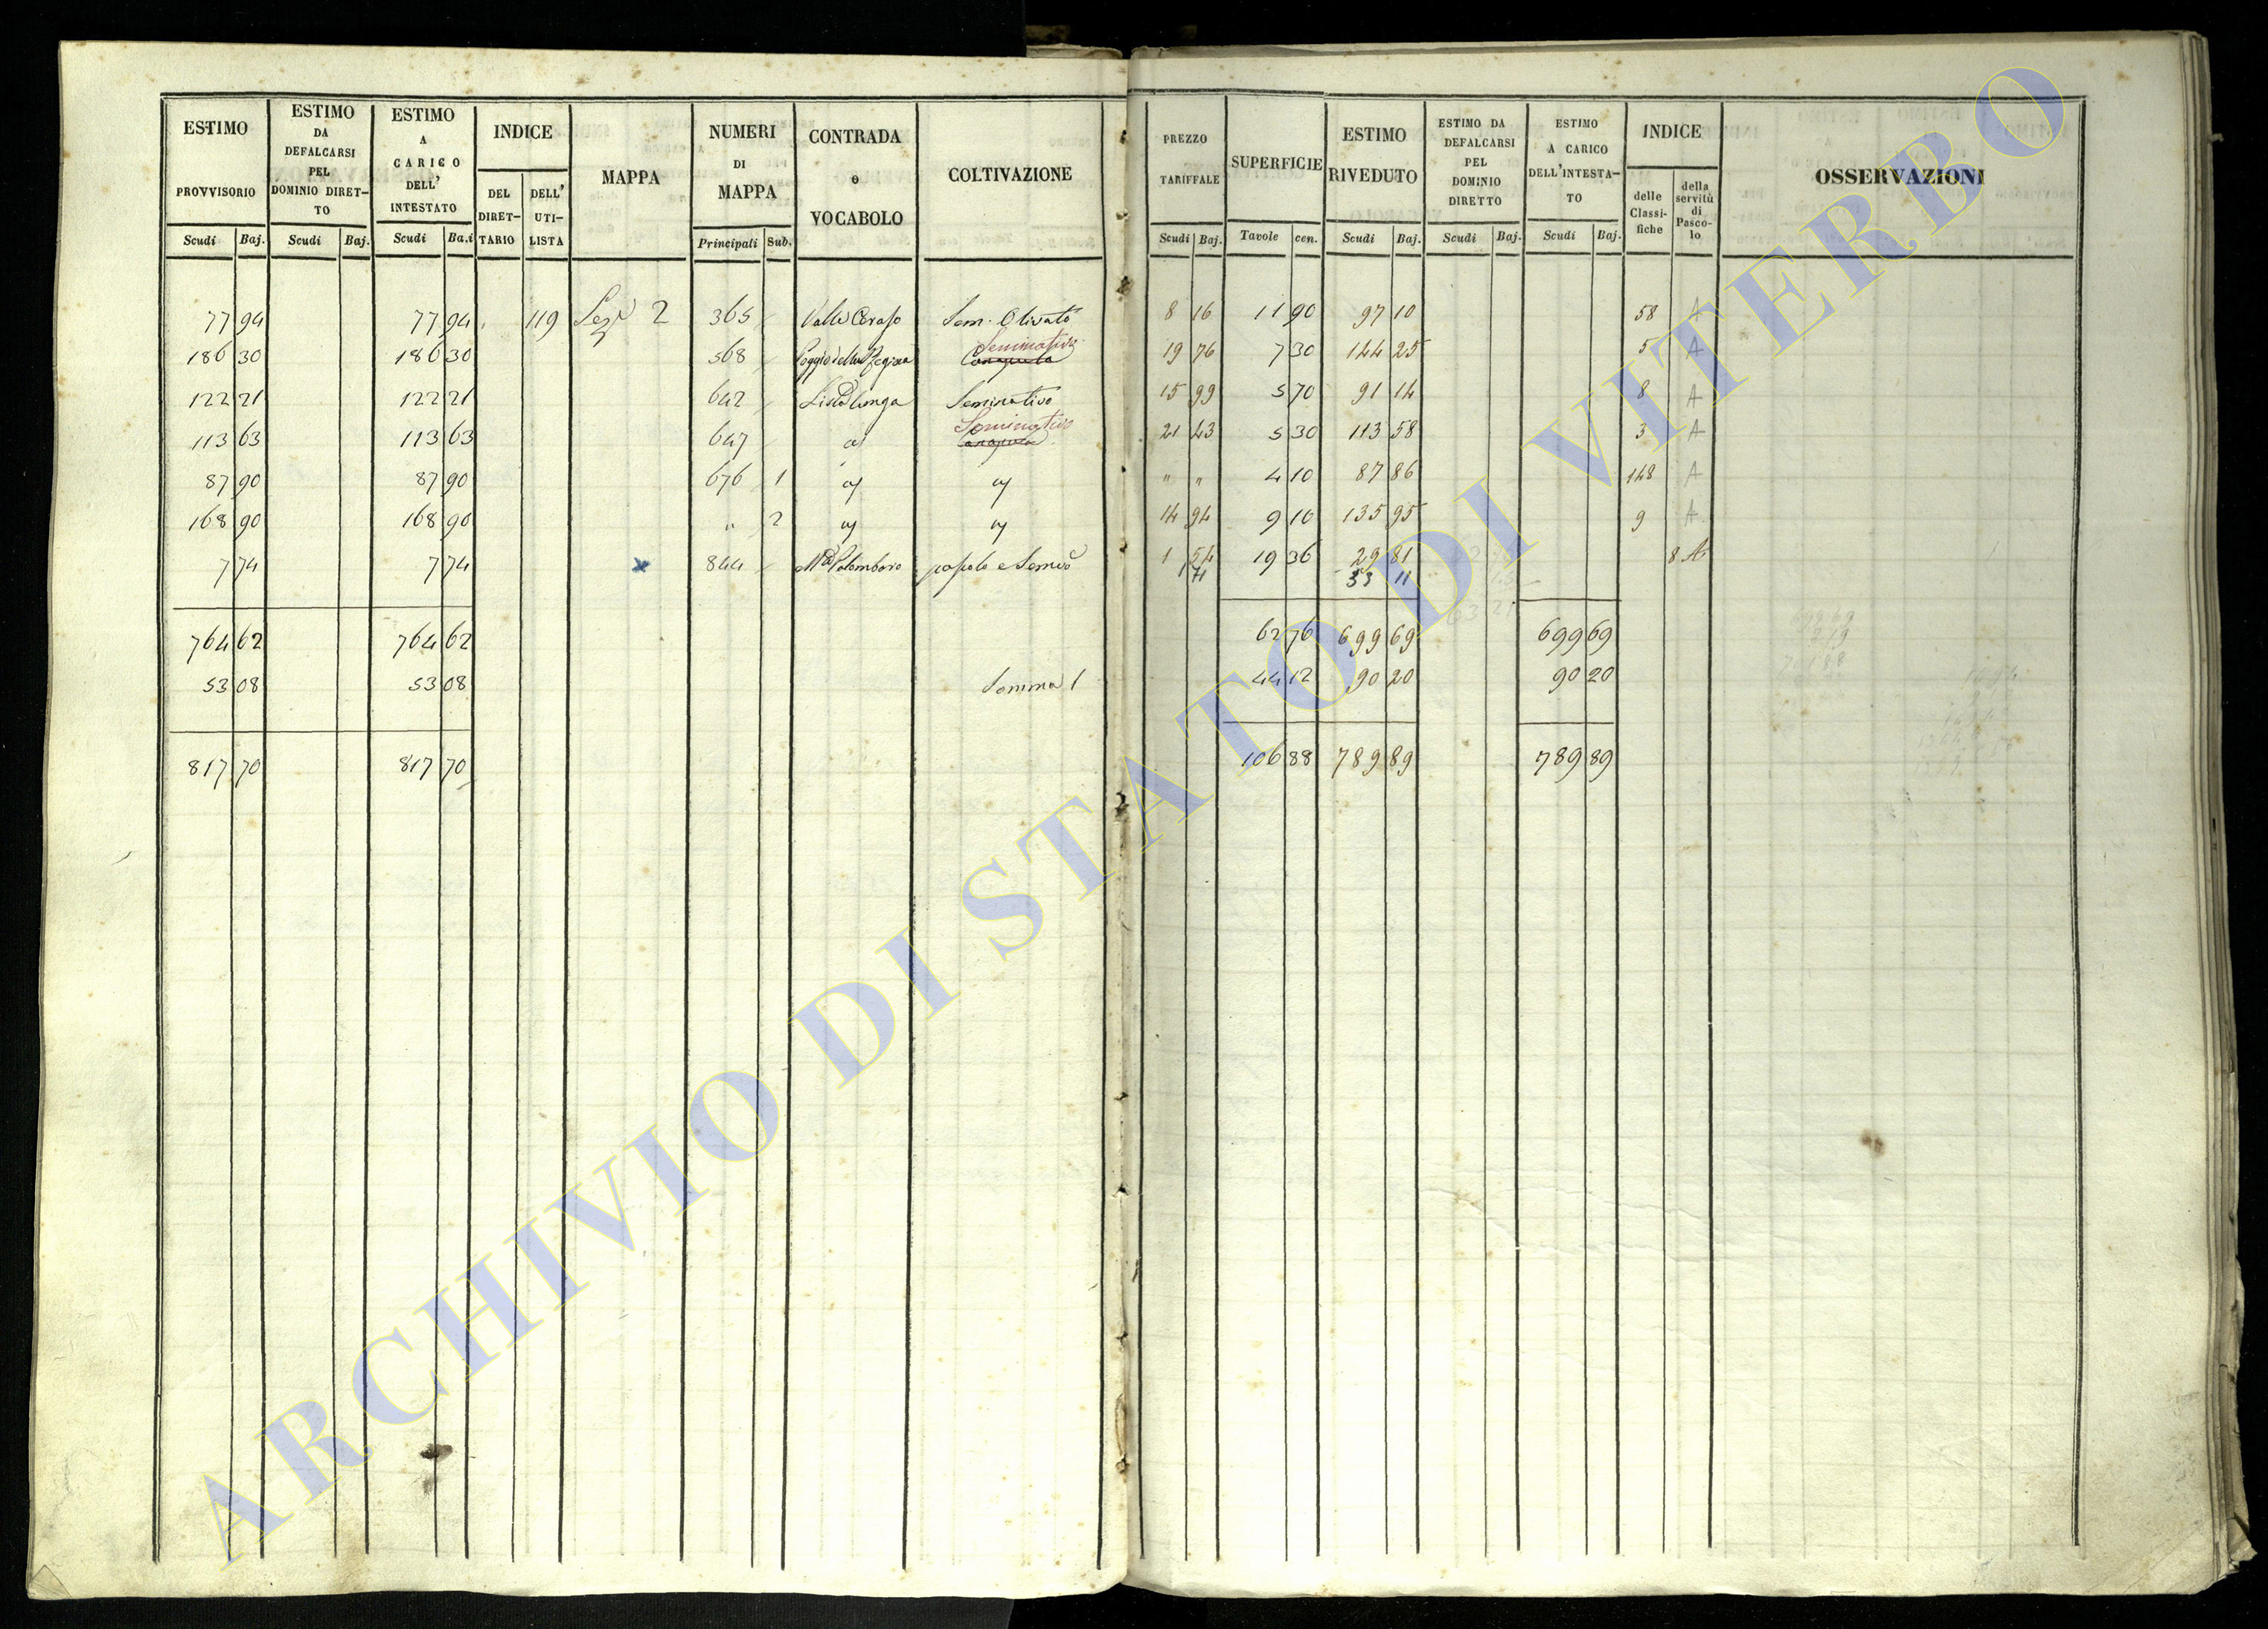 ESTIMO PROVVISORIO Scudi Baj. | ESTIMO DA DEFALCARSI PEL DOMINIO DIRET-TO Scudi Baj. | ESTIMO A CARICO DELL' INTESTATO Scudi Ba.i | INDICE DEL DIRET-TARIO DELL' UTI-LISTA | MAPPA | NUMERI DI MAPPA Principali Sub. | CONTRADA o VOCABOLO | COLTIVAZIONE | PREZZO TARIFFALE Scudi Baj. | SUPERFICIE Tavole cen. | ESTIMO RIVEDUTO Scudi Baj. | ESTIMO DA DEFALCARSI PEL DOMINIO DIRETTO Scudi Baj. | ESTIMO A CARICO DELL'INTESTA-TO Scudi Baj. | INDICE delle Classi-fiche della servitù di Pasco-lo | OSSERVAZIONI
77 94 77 94 119 Sez 2 365 Valle Ceraso Sem. Olivato 8 16 11 90 97 10 58 A
186 30 186 30 568 Poggio della Regina Seminativo 19 76 7 30 144 25 5 A
122 21 122 21 642 Lista lunga Seminativo 15 99 5 70 91 14 8 A
113 63 113 63 647 Seminativo 21 43 5 30 113 58 3 A
87 90 87 90 676 1 " " 4 10 87 86 148 A
168 90 168 90 " 2 14 94 9 10 135 95 9 A
7 74 7 74 x 844 Palombaro pascolo e Semivo 1 54 19 36 29 81 8 A
1 71 33 11
764 62 764 62 62 76 699 69 699 69
53 08 53 08 Somma 1 44 12 90 20 90 20
817 70 817 70 106 88 789 89 789 89
ARCHIVIO DI STATO DI VITERBO